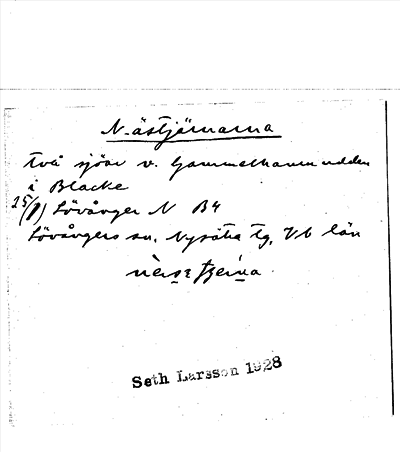 N. ästjärnarna
två sjöar v. Gammelhamnudden
i Blacke
25/(1) Lövånger N B4
Lövångers sn. Nysätra tg, Vb län
Seth Larsson 1928